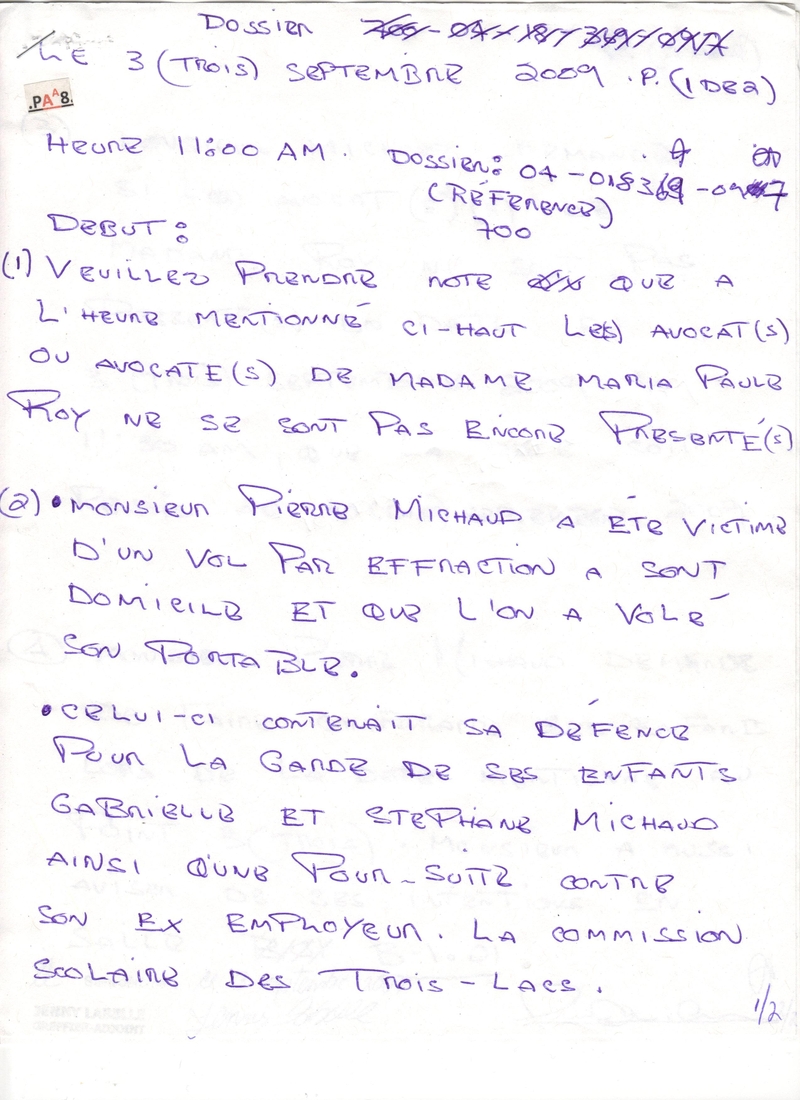 DOSSIER
LE 3 (TROIS) SEPTEMBRE 2009 .P.(1 DE 2)
.PAA8.
HEURE 11:00 AM. DOSSIER: 04-018369-097
(RÉFÉRENCE)
700
DEBUT:
(1) VEUILLEZ PRENDRE NOTE QUE A
L'HEURE MENTIONNÉ CI-HAUT LE(S) AVOCAT(S)
OU AVOCATE(S) DE MADAME MARIA PAULE
ROY NE SE SONT PAS ENCORE PRÉSENTÉ(S)
(2) • MONSIEUR PIERRE MICHAUD A ÉTÉ VICTIME
D'UN VOL PAR EFFRACTION A SONT
DOMICILE ET QUE L'ON A VOLÉ
SON PORTABLE.
• CELUI-CI CONTENAIT SA DÉFENCE
POUR LA GARDE DE SES ENFANTS
GABRIELLE ET STEPHANE MICHAUD
AINSI QU'UNE POUR-SUITE CONTRE
SON EX EMPLOYEUR. LA COMMISSION
SCOLAIRE DES TROIS-LACS.
1/2